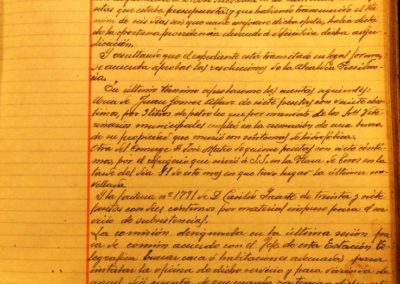 que estaba presupuesta, y que habiendo transcurrido el tér
mino de seis días sin que nadie mejorase dicha oferta, había dictado
la oportuna providencia elevando a definitiva dicha adju
dicación.
Y resultando que el expediente está tramitado en legal forma,
se acuerda aprobar las resoluciones de la Alcaldía Presiden
cia.
En último término se aprobaron las cuentas siguientes:
Una de Juan Gomez Alfaro de siete pesetas con veinte cén
timos, por 3 litros de petroleo que por mandato de los Sres Vete
rinarios municipales empleó en la cremación de una cerda
de su propiedad que murió con síntomas de hidrofobia.
Otra del Conserge D. José Mateo de quince pesetas con siete cénti
mos, por el refrigerio que sirvió a S.S. en la Plaza de Toros en la
tarde del día 31 de este mes en que tuvo lugar la última no
villada.
Y la factura nº 1771 de D. Casildo de treinta y siete
pesetas con diez céntimos por material impreso para el ser
vicio de subsistencias.
La comisión designada en la última sesión pa
ra de común acuerdo con el Jefe de esta Estación Te
legrafica buscar casa o habitaciones adecuadas para
instalar la oficina de dicho servicio y para vivienda de